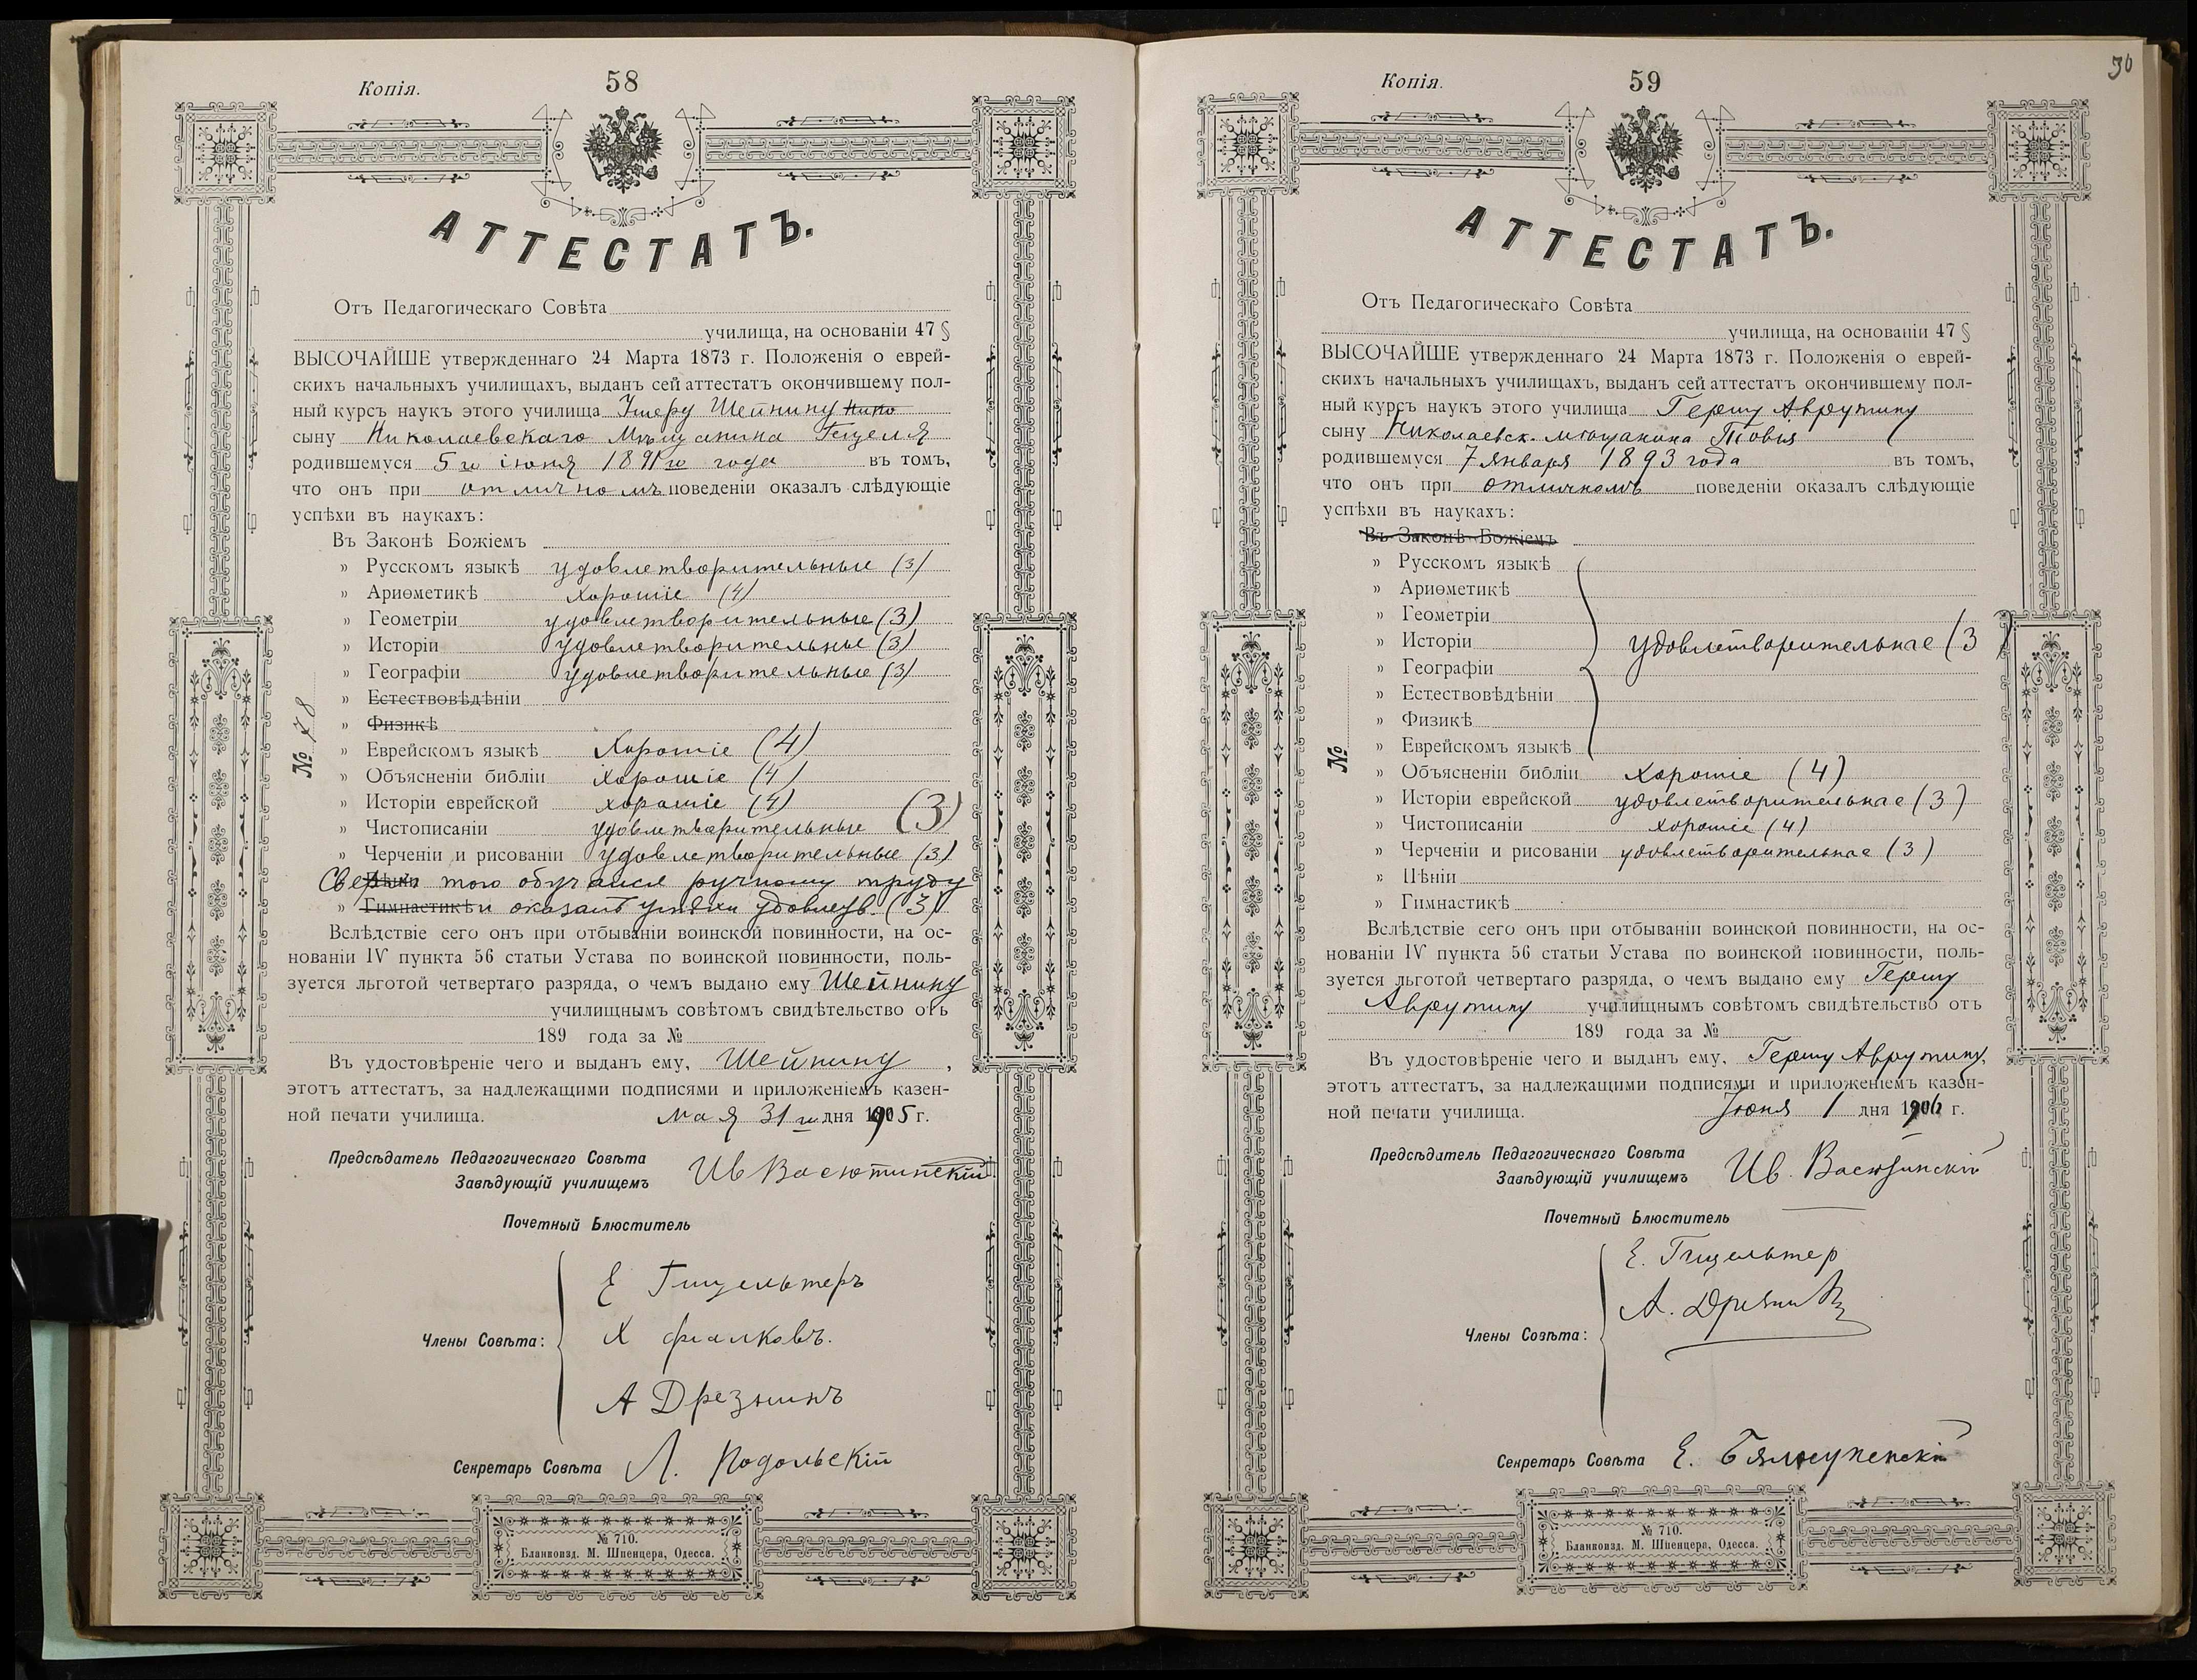 Копія.
58
АТТЕСТАТЪ.
Отъ Педагогическаго Совѣта
училища, на основаніи 47 §
ВЫСОЧАЙШЕ утвержденнаго 24 Марта 1873 г. Положенія о еврей-
скихъ начальныхъ училищахъ, выданъ сей аттестатъ окончившему пол-
ный курсъ наукъ этого училища Ушеру Шейнину Нико
сыну Николаевскаго Мѣщанина Гецеля
родившемуся 5го іюня 1891го года въ томъ,
что онъ при отличномъ поведеніи оказалъ слѣдующіе
успѣхи въ наукахъ:
Въ Законѣ Божіемъ
» Русскомъ языкѣ удовлетворительные (3)
» Ариѳметикѣ Хорошіе (4)
» Геометріи удовлетворительные (3)
» Исторіи удовлетворительные (3)
» Географіи удовлетворительные (3)
» Естествовѣдѣніи
» Физикѣ
» Еврейскомъ языкѣ Хорошіе (4)
» Объясненіи библіи хорошіе (4)
» Исторіи еврейской хорошіе (4)
» Чистописаніи удовлетворительные (3)
» Черченіи и рисованіи удовлетворительные (3)
Сверхъ того обучался ручному труду
» Гимнастикѣ и оказалъ успѣхи удовлетв. (3)
№ 78
Вслѣдствіе сего онъ при отбываніи воинской повинности, на ос-
нованіи IV пункта 56 статьи Устава по воинской повинности, поль-
зуется льготой четвертаго разряда, о чемъ выдано ему Шейнину
училищнымъ совѣтомъ свидѣтельство отъ
189 года за №
Въ удостовѣреніе чего и выданъ ему, Шейнину,
этотъ аттестатъ, за надлежащими подписями и приложеніемъ казен-
ной печати училища. мая 31го дня 1905 г.
Предсѣдатель Педагогическаго Совѣта
Завѣдующій училищемъ Ив Васютинскій
Почетный Блюститель
Е Гищельтеръ
Члены Совѣта: Х Фіалковъ.
А Дрезнинъ
Секретарь Совѣта Л. Подольскій
№ 710.
Бланкоизд. М. Шпенцера, Одесса.
Копія.
59
30
АТТЕСТАТЪ.
Отъ Педагогическаго Совѣта
училища, на основаніи 47 §
ВЫСОЧАЙШЕ утвержденнаго 24 Марта 1873 г. Положенія о еврей-
скихъ начальныхъ училищахъ, выданъ сей аттестатъ окончившему пол-
ный курсъ наукъ этого училища Гершу Аврутину
сыну Николаевск. мѣщанина Товія
родившемуся 7 января 1893 года въ томъ,
что онъ при отличномъ поведеніи оказалъ слѣдующіе
успѣхи въ наукахъ:
Въ Законѣ Божіемъ
» Русскомъ языкѣ
» Ариѳметикѣ
» Геометріи
» Исторіи удовлетворительнае (3)
» Географіи
» Естествовѣдѣніи
» Физикѣ
» Еврейскомъ языкѣ
» Объясненіи библіи хорошіе (4)
» Исторіи еврейской удовлетворительнае (3)
» Чистописаніи хорошіе (4)
» Черченіи и рисованіи удовлетворительнае (3)
» Пѣніи
» Гимнастикѣ
№
Вслѣдствіе сего онъ при отбываніи воинской повинности, на ос-
нованіи IV пункта 56 статьи Устава по воинской повинности, поль-
зуется льготой четвертаго разряда, о чемъ выдано ему Гершу
Аврутину училищнымъ совѣтомъ свидѣтельство отъ
189 года за №
Въ удостовѣреніе чего и выданъ ему, Гершу Аврутину,
этотъ аттестатъ, за надлежащими подписями и приложеніемъ казен-
ной печати училища. Іюня 1 дня 1906 г.
Предсѣдатель Педагогическаго Совѣта
Завѣдующій училищемъ Ив. Васютинскій
Почетный Блюститель
Е. Гищельтер
А. Дрезнинъ
Члены Совѣта:
Секретарь Совѣта Е.
№ 710.
Бланкоизд. М. Шпенцера, Одесса.